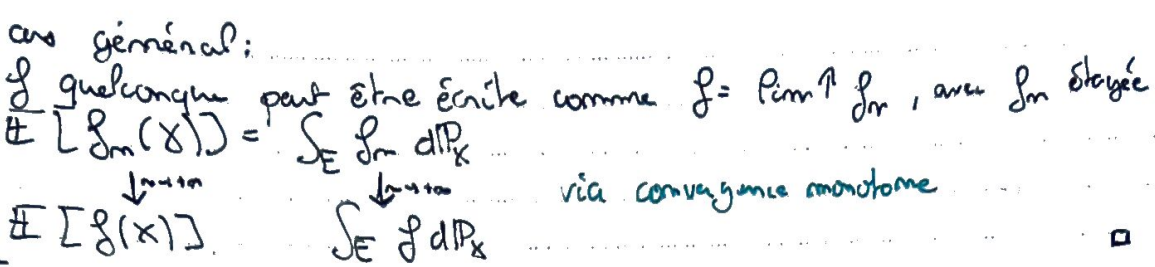 cas général:
f quelconque peut être écrite comme f = lim↑ fn, avec fn étagée
𝔼[fn(X)] = ∫_E fn dℙ_X
↓n→+∞ ↓n→+∞ via convergence monotone
𝔼[f(X)] ∫_E f dℙ_X □